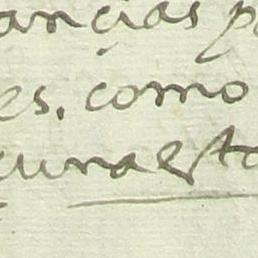 ançias p
es. como
cuna esta